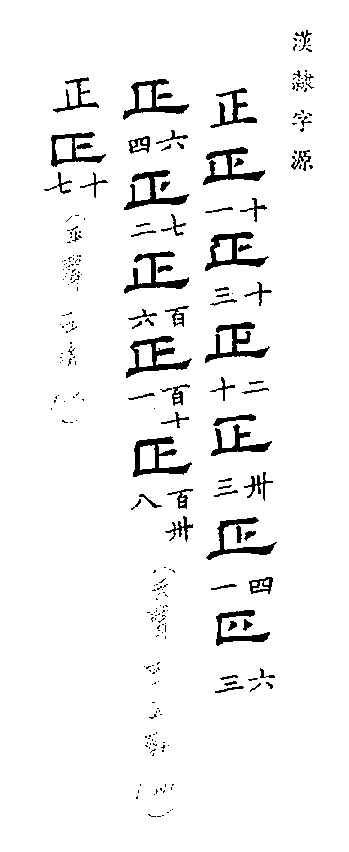 漢隸字源
正
正
十一
正
十三
正
二十
正
卅三
正
四一
正
六三
正
六四
正
七二
正
百六
正
百十一
正
百卅八
正
正
十七